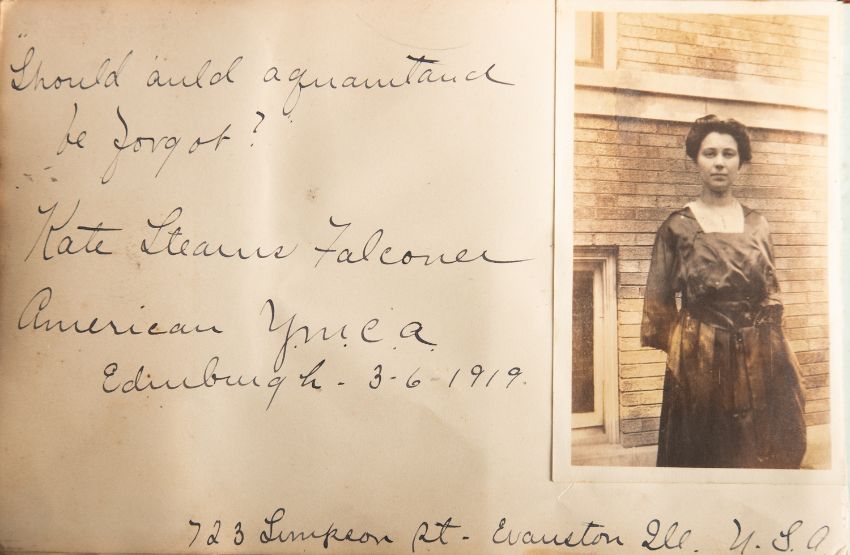 "Should auld aquaintand
be forgot?"
Kate Stearns Falconer
American Y.M.C.A.
Edinburgh - 3-6-1919.
723 Simpson St. - Evanston Ill. U.S.A.